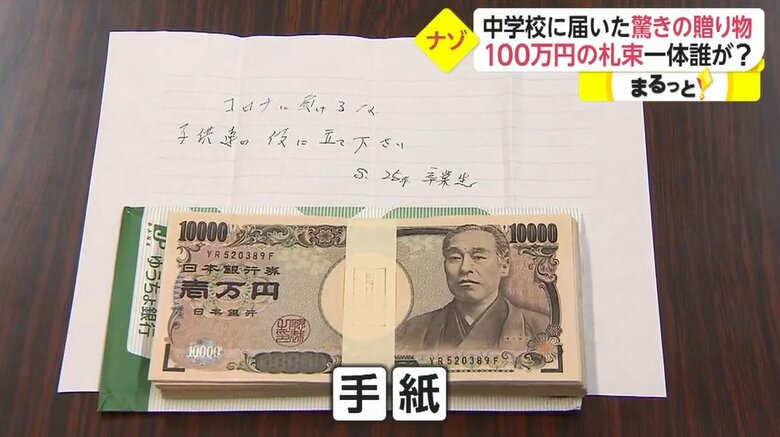 ナゾ
中学校に届いた驚きの贈り物
100万円の札束一体誰が？
まるっと！
コロナに負けるな
子供達の役に立て下さい
S.25年 卒業生
10000
10000
YR520389F
日本銀行券
壱万円
日本銀行
10000
YR520389F
JP
BANK
ゆうちょ銀行
手紙